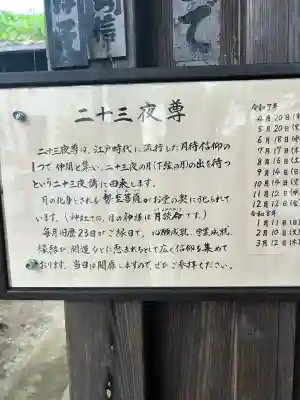 二十三夜尊
二十三夜尊は、江戸時代に流行した月待信仰の
1つで 仲間と集い、二十三夜の月(下弦の月)の出を待つ
という二十三夜講に由来します。
月の化身とされる 勢至菩薩がお堂の奥に祀られて
います。(神社では、月の神様は月読命です。)
毎月旧暦23日がご縁日で、心願成就、学業成就、
縁結び、開運などに恵まれるとして広く信仰を集めて
おります。当日は開扉しますので、ぜひご参拝ください。
令和7年
4月20日(
5月20日(
6月18日(水
7月17日(木
8月16日(土
9月14日(日
10月14日(火
11月12日(水
12月12日(金
令和8年
1月11日(日
2月10日(火
3月12日(木